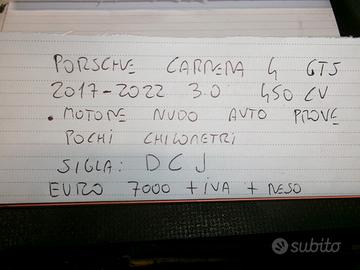 PORSCHE CARRERA 4 GTS
2017-2022 3.0 450 CV
. MOTORE NUDO AUTO PROVE
POCHI CHILOMETRI
SIGLA: DCJ
EURO 7000 + IVA + RESO
subito